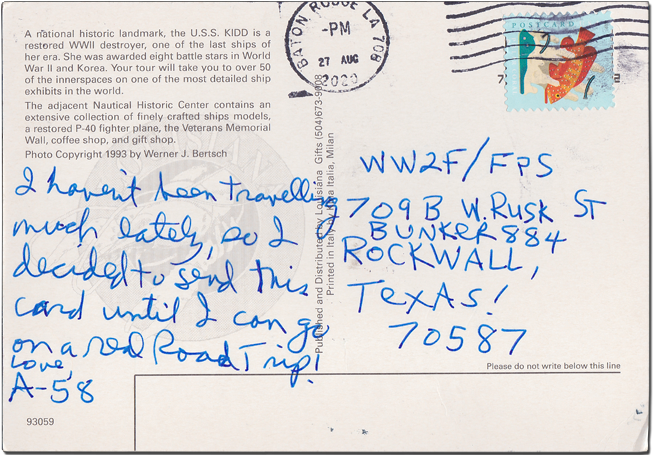 A national historic landmark, the U.S.S. KIDD is a
restored WWII destroyer, one of the last ships of
her era. She was awarded eight battle stars in World
War II and Korea. Your tour will take you to over 50
of the innerspaces on one of the most detailed ship
exhibits in the world.
The adjacent Nautical Historic Center contains an
extensive collection of finely crafted ships models,
a restored P-40 fighter plane, the Veterans Memorial
Wall, coffee shop, and gift shop.
Photo Copyright 1993 by Werner J. Bertsch
I haven't been travelling
much lately, so I
decided to send this
card until I can go
on a real Road Trip!
Love,
A-58
93059
Published and Distributed by Louisiana Gifts (504)673-9008
Printed in Italy by Kina Italia, Milan
BATON ROUGE LA 708
-PM
27 AUG
2020
POSTCARD
WW2F/FPS
709B W. RUSK ST
BUNKER 884
ROCKWALL,
TEXAS!
70587
Please do not write below this line